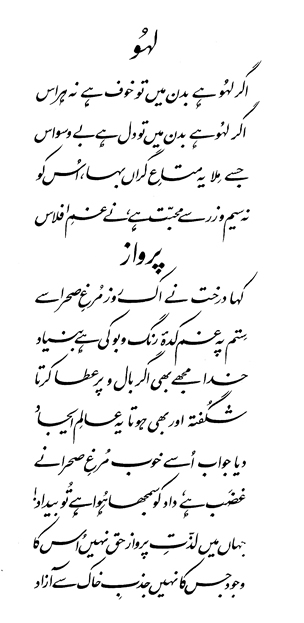 لہُو
اگر لہُو ہے بدن میں تو خوف ہے نہ ہراس
اگر لہُو ہے بدن میں تو دل ہے بے وسواس
جسے مِلا یہ متاعِ گراں بہا، اُس کو
نہ سیم و زر سے محبّت ہے، نے غمِ افلاس
پرواز
کہا درخت نے اک روز مُرغِ صحرا سے
سِتم پہ غم کدۂ رنگ و بو کی ہے بنیاد
خدا مجھے بھی اگر بال و پر عطا کرتا
شگُفتہ اور بھی ہوتا یہ عالمِ ایجاد
دیا جواب اُسے خوب مُرغِ صحرا نے
غضَب ہے داد کو سمجھا ہُوا ہے تُو بیداد!
جہاں میں لذّتِ پرواز حق نہیں اُس کا
وجود جس کا نہیں جذبِ خاک سے آزاد